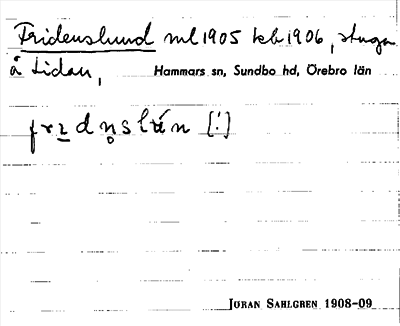 Fridenslund ml 1905 kb 1906, stuga
å Lidan, Hammars sn, Sundbo hd, Örebro län
[!]
JÖRAN SAHLGREN 1908–09